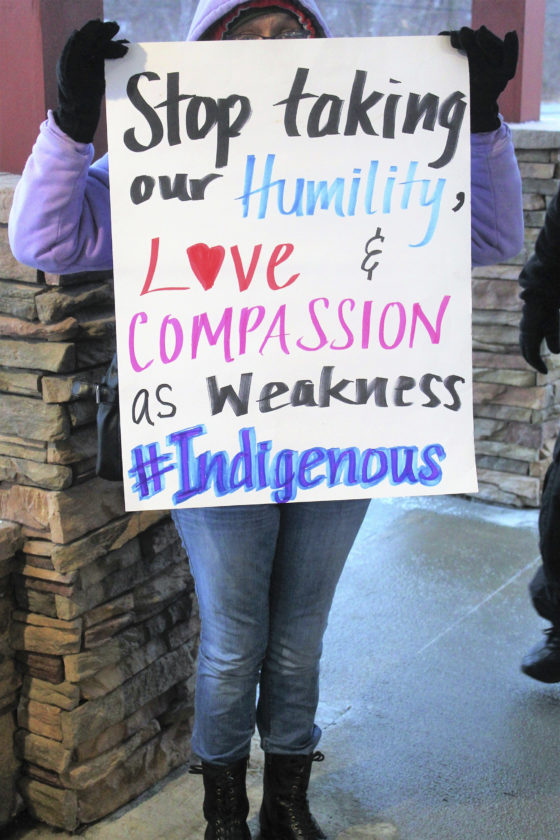 Stop taking
our Humility,
Love &
COMPASSION
as Weakness
#Indigenous